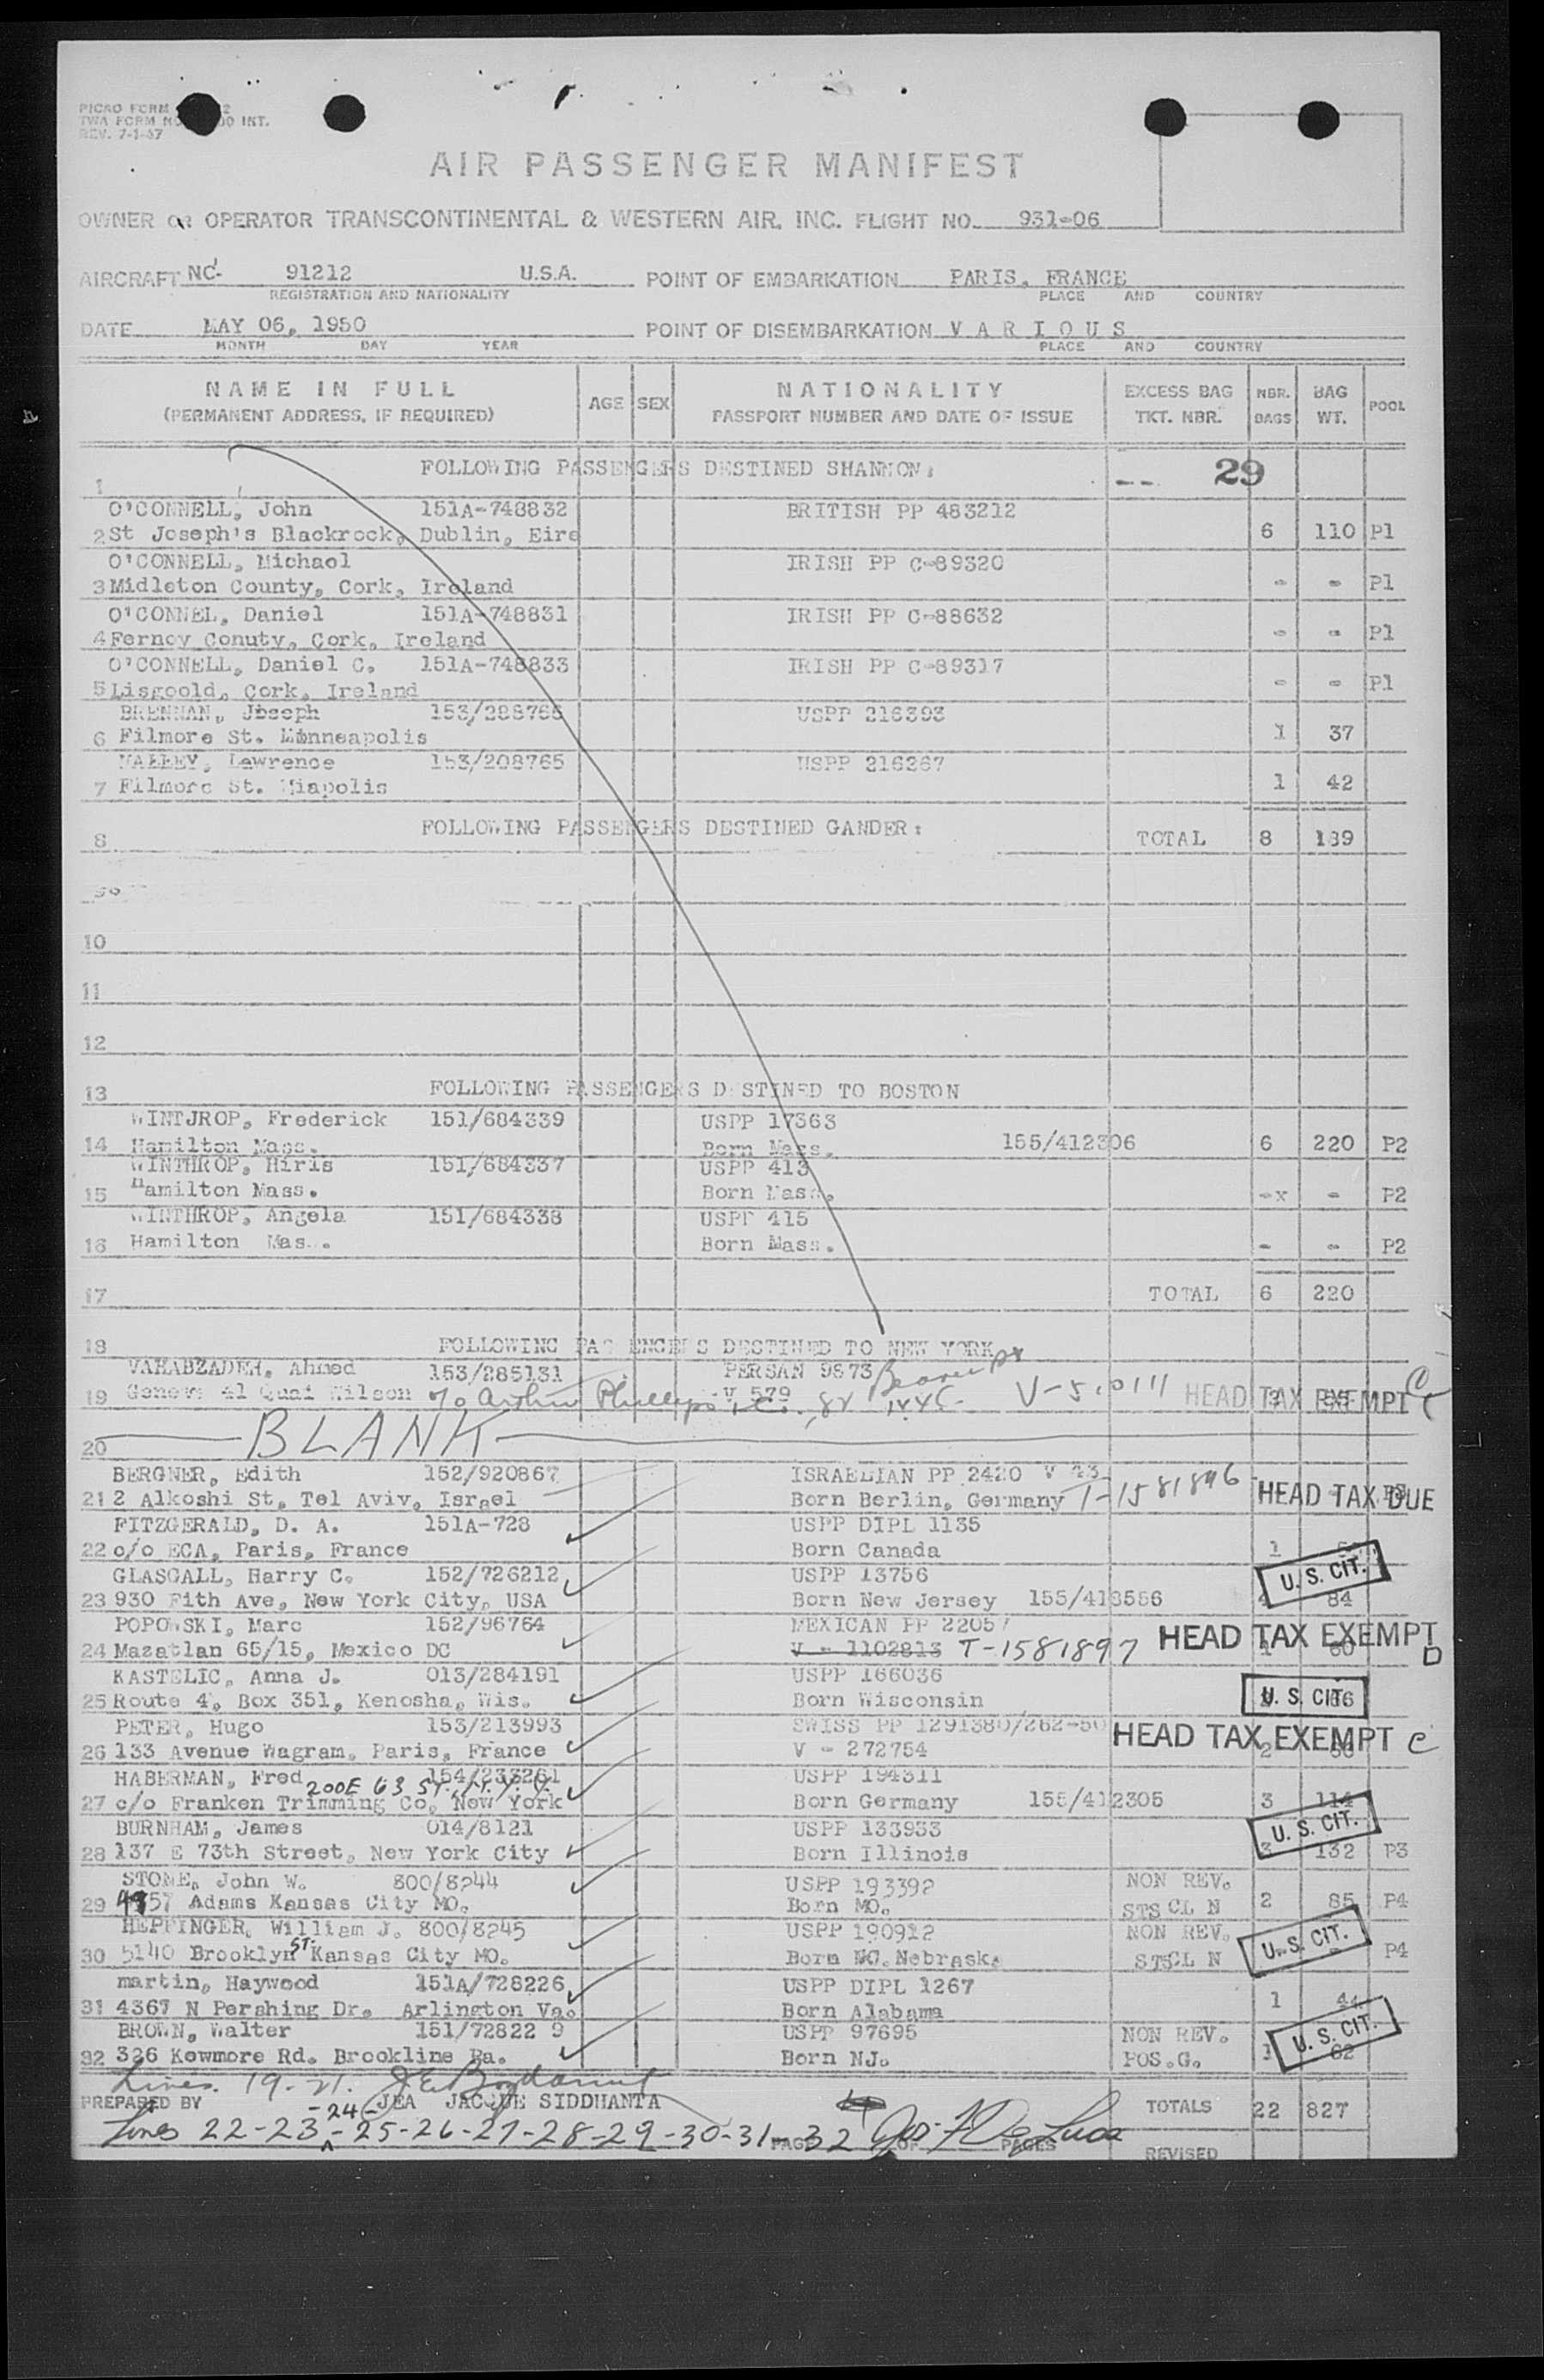 AIR PASSENGER MANIFEST
OWNER OR OPERATOR TRANSCONTINENTAL & WESTERN AIR, INC. FLIGHT NO. 931-06
AIRCRAFT NC- 91212 U.S.A. POINT OF EMBARKATION PARIS, FRANCE
REGISTRATION AND NATIONALITY PLACE AND COUNTRY
DATE MAY 06, 1950 POINT OF DISEMBARKATION V A R I O U S
MONTH DAY YEAR PLACE AND COUNTRY
NAME IN FULL AGE SEX NATIONALITY EXCESS BAG NBR. BAG POOL
(PERMANENT ADDRESS, IF REQUIRED) PASSPORT NUMBER AND DATE OF ISSUE TKT. NBR. BAGS WT.
1 FOLLOWING PASSENGERS DESTINED SHANNON: -- 29
O'CONNELL, John 151A-748832 BRITISH PP 483212
2 St Joseph's Blackrock, Dublin, Eire 6 110 P1
O'CONNELL, Michael IRISH PP C-89320
3 Midleton County, Cork, Ireland - - P1
O'CONNEL, Daniel 151A-748831 IRISH PP C-88632
4 Ferncy Conuty, Cork, Ireland - - P1
O'CONNELL, Daniel C. 151A-748833 IRISH PP C-89317
5 Lisgoold, Cork, Ireland - - P1
BRENNAN, Joseph 153/288766 USPP 216393
6 Filmore St. Minneapolis 1 37
Lawrence 153/208765 USPP 216267
7 Filmore St. 1 42
8 FOLLOWING PASSENGERS DESTINED GANDER: TOTAL 8 189
9
10
11
12
13 FOLLOWING PASSENGERS DESTINED TO BOSTON
WINTJROP, Frederick 151/684339 USPP 17363
14 Hamilton Mass. Born Mass. 155/412306 6 220 P2
WINTHROP, Hiris 151/684337 USPP 413
15 Hamilton Mass. Born Mass. -x - P2
WINTHROP, Angela 151/684338 USPP 415
16 Hamilton Mas . Born Mass. - - P2
17 TOTAL 6 220
18 FOLLOWING PASSENGERS DESTINED TO NEW YORK
VAHABZADEH, Ahmed 153/285131 PERSAN 9573
19 Geneve 41 Quai Wilson c/o Arthur Phillips V 579 HEAD TAX EXEMPT
20 BLANK
BERGNER, Edith 152/920867 ISRAELIAN PP 2420 V 43
21 2 Alkoshi St, Tel Aviv, Israel Born Berlin, Germany T-1581896 HEAD TAX DUE
FITZGERALD, D. A. 151A-728 USPP DIPL 1135
22 c/o ECA, Paris, France Born Canada 1
GLASGALL, Harry C. 152/726212 USPP 13756 U. S. CIT.
23 930 Fith Ave, New York City, USA Born New Jersey 155/413556 84
POPOWSKI, Marc 152/96764 MEXICAN PP 22057
24 Mazatlan 65/15, Mexico DC V - 1102813 T-1581897 HEAD TAX EXEMPT D 1 60
KASTELIC, Anna J. 013/284191 USPP 166036
25 Route 4, Box 351, Kenosha, Wis. Born Wisconsin U. S. CIT.
PETER, Hugo 153/213993 SWISS PP 1291380/262-50
26 133 Avenue Wagram, Paris, France V - 272754 HEAD TAX EXEMPT C 2
HABERMAN, Fred 154/233261 USPP 194311
200 E 63 ST. N.Y.
27 c/o Franken Trimming Co, New York Born Germany 155/412305 3 114
BURNHAM, James 014/8121 USPP 133933 U. S. CIT.
28 137 E 73th Street, New York City Born Illinois 3 132 P3
STONE, John W. 800/8244 USPP 193392 NON REV.
29 4957 Adams Kansas City MO. Born MO. STS CL N 2 85 P4
HEPPINGER, William J. 800/8245 USPP 190912 NON REV.
30 5140 Brooklyn ST. Kansas City MO. Born MO. Nebrask. STSCL N U. S. CIT. P4
martin, Haywood 151A/728226 USPP DIPL 1267
31 4367 N Pershing Dr. Arlington Va. Born Alabama 1 44
BROWN, Walter 151/72822 9 USPP 97695 NON REV. U. S. CIT.
32 326 Kewmore Rd. Brookline Pa. Born NJ. POS.G. 1 62
Lines 19-21.
PREPARED BY JEA JACQUE SIDDHANTA TOTALS 22 827
Lines 22-23-24-25-26-27-28-29-30-31-32 Jos. F. De Luca
PAGE OF PAGES REVISED